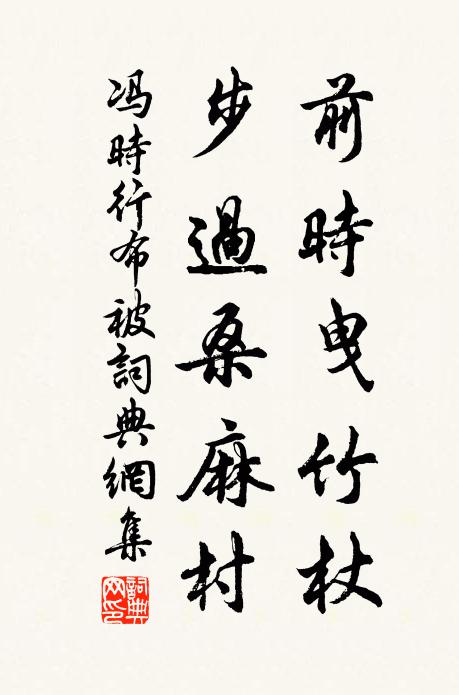 前時曳竹杖
步過桑麻村
冯時行布被詞典網集
詞典網印